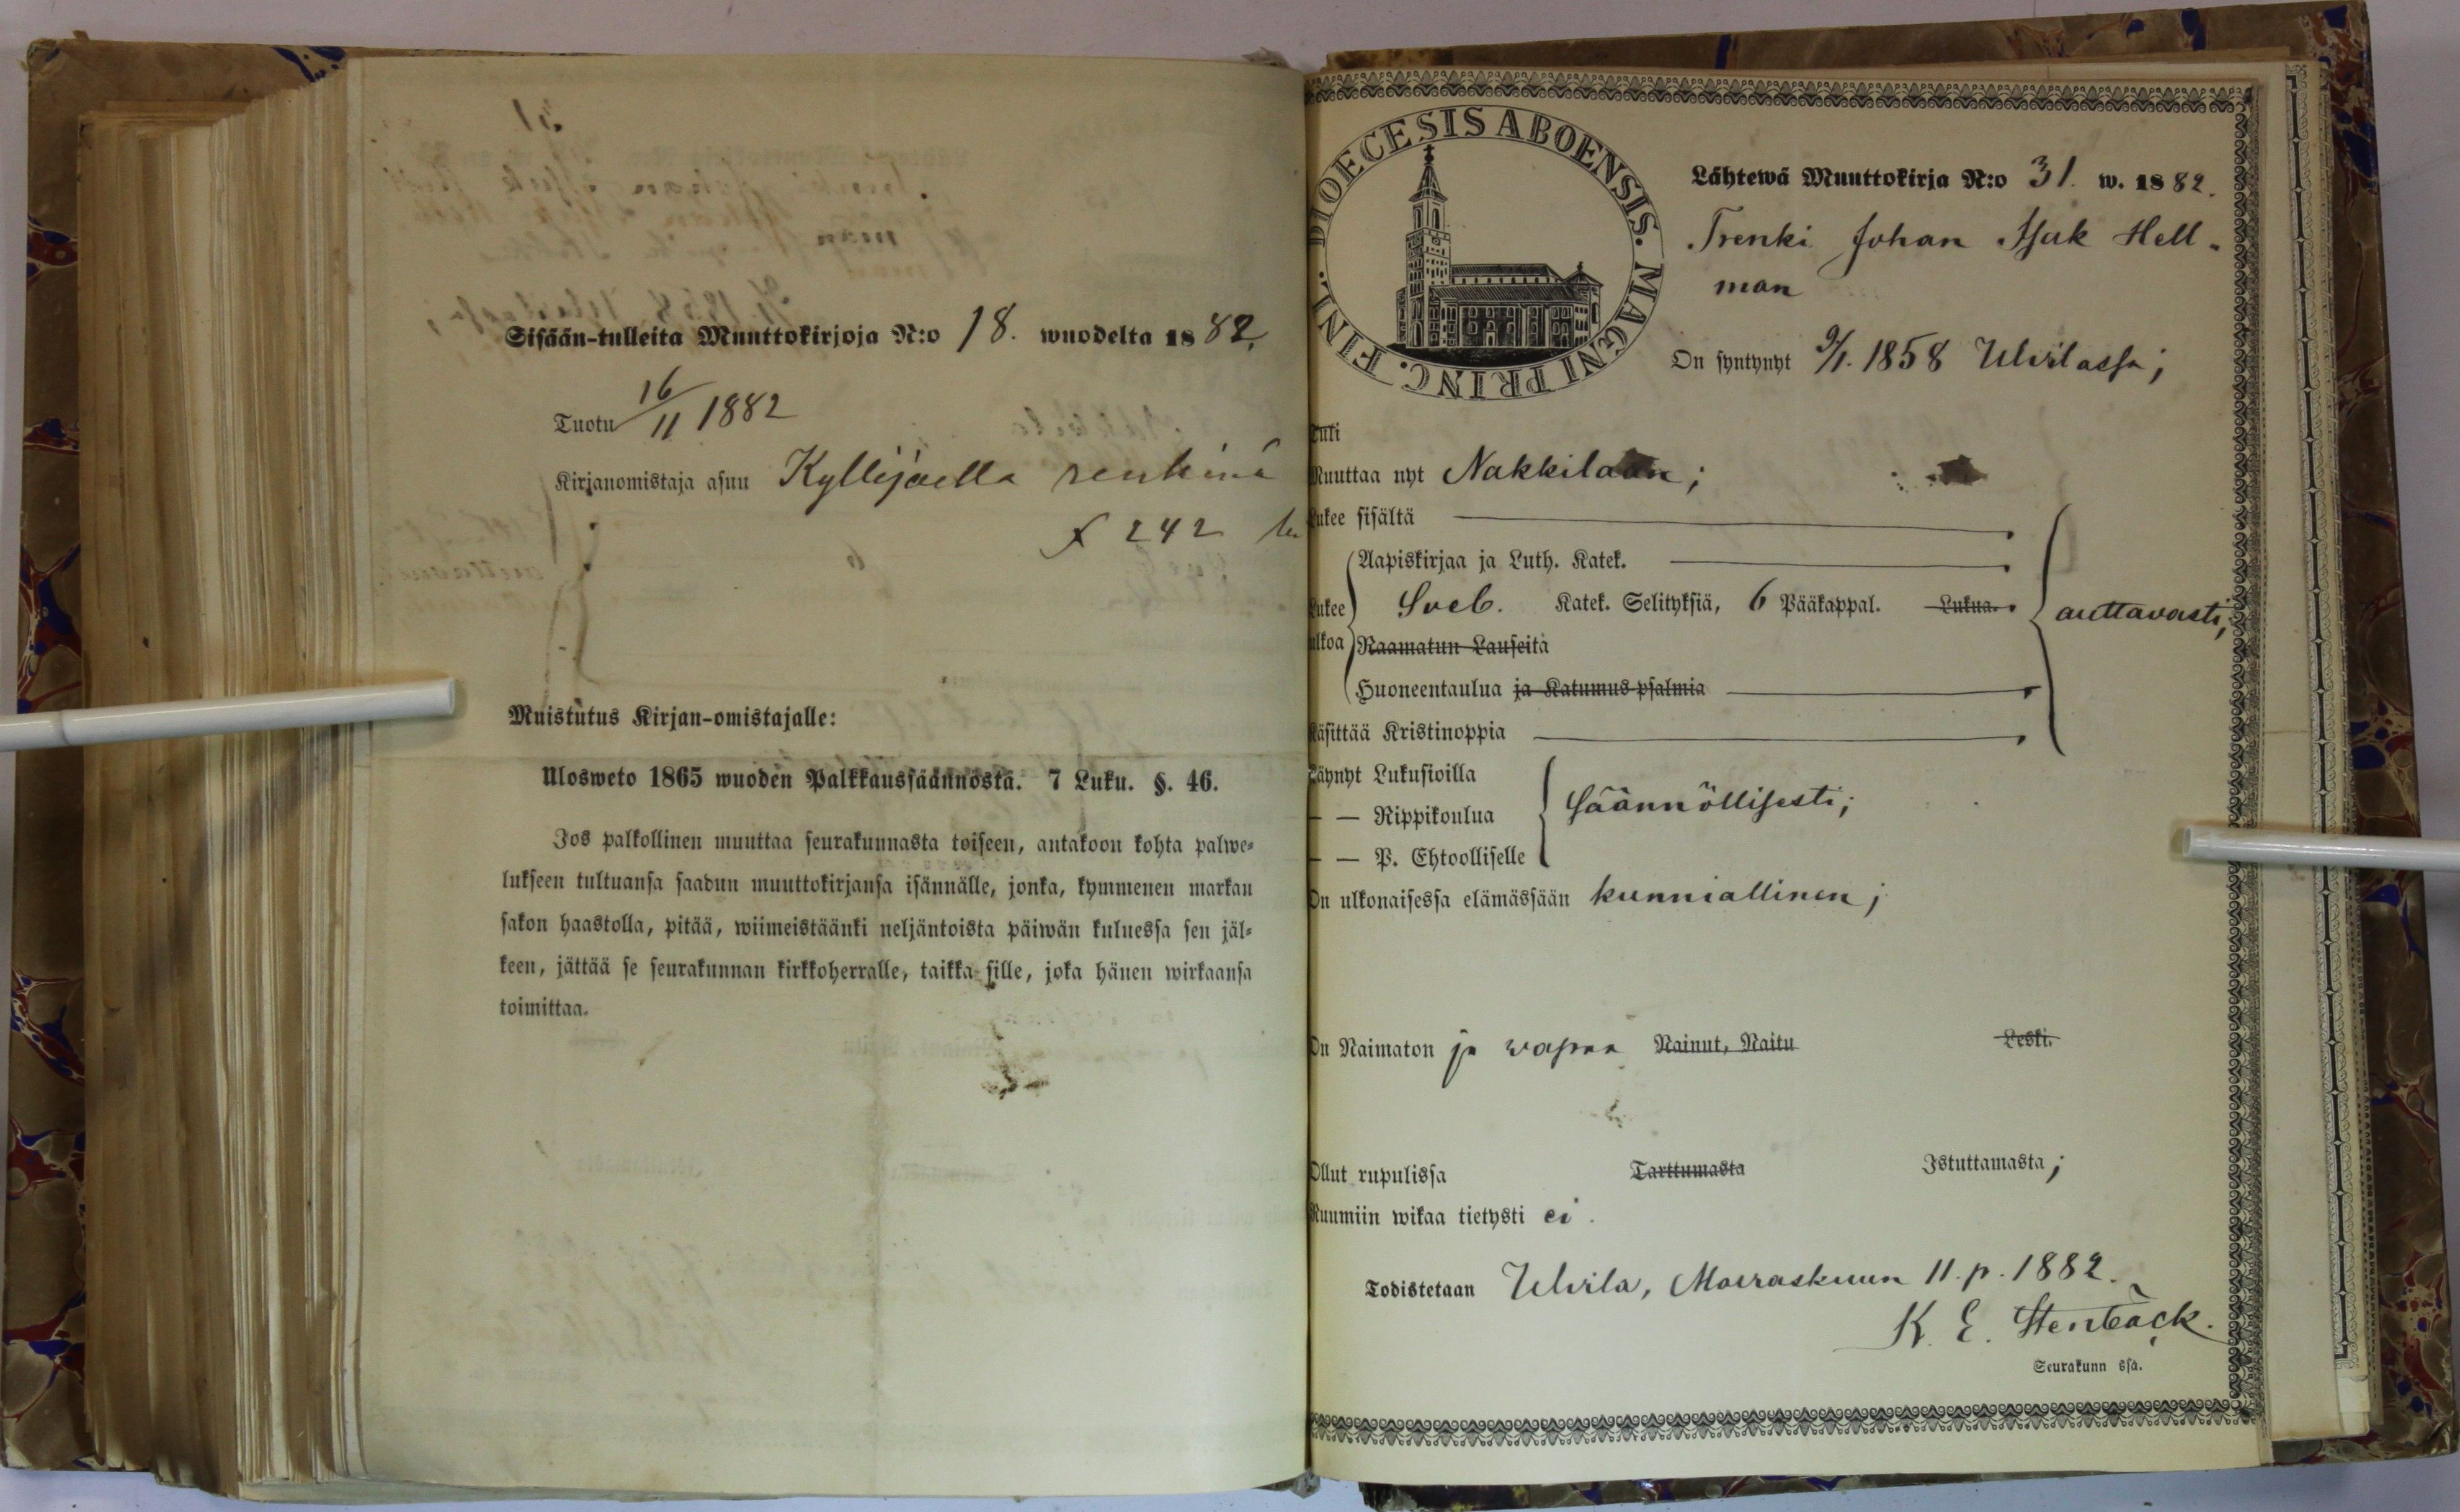 Sisään-tulleita Muuttokirjoja N:o 18. wuodelta 1882.
Tuotu 16/11 1882
Kirjanomistaja asuu Kyllijoella renkinä
242
Muistutus Kirjan-omistajalle:
Ulosweto 1865 wuoden Palkkaussäännöstä. 7 Luku. §. 46.
Jos palkollinen muuttaa seurakunnasta toiseen, antakoon kohta palwe-
lukseen tultuansa saadun muuttokirjansa isännälle, jonka, kymmenen markan
sakon haastolla, pitää, wiimeistäänki neljäntoista päiwän kuluessa sen jäl-
keen, jättää se seurakunnan kirkkoherralle, taikka sille, joka hänen wirkaansa
toimittaa.
DIOECESIS ABOENSIS. MAGNI PRINC. FINL.
Lähtewä Muuttokirja N:o 31. w. 1882.
Trenki Johan Isak Hell-
man
On syntynyt 9/1. 1858 Ulvilassa;
Tuli
Muuttaa nyt Nakkilaan;
Lukee sisältä
Aapiskirjaa ja Luth. Katek.
Lukee Sveb. Katek. Selityksiä, 6 Pääkappal. Lukua. auttavasti;
ulkoa Raamatun Lauseita
Huoneentaulua ja Katumus-psalmia
Käsittää Kristinoppia
Käynyt Lukusioilla
— — Rippikoulua säännöllisesti;
— — P. Ehtoolliselle
On ulkonaisessa elämässään kunniallinen;
On Naimaton ja wapaa Nainut, Naitu Leski.
Ollut rupulissa Tarttumasta Istuttamasta;
Ruumiin wikaa tietysti ei.
Todistetaan Ulvila, Marraskuun 11. p. 1882.
K. E. Stenbäck.
Seurakunn ssa.